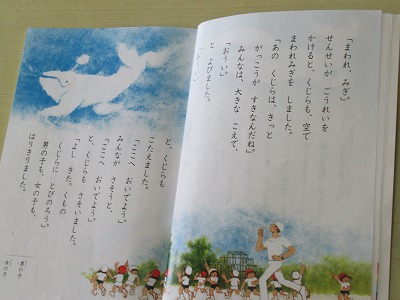 「まわれ、みぎ」。
せんせいが ごうれいを
かけると、くじらも、空で
まわれみぎを しました。
「あの くじらは、きっと
がっこうが すきなんだね。」
みんなは、大きな こえで、
「おうい。」
と よびました。
「おうい。」
と、くじらも
こたえました。
「ここへ おいでよう。」
みんなが さそうと、
「ここへ おいでよう。」
と、くじらも
さそいました。
「よし きた。くもの
くじらに とびのろう。」
男の子も、女の子も、
はりきりました。
男の子
女の子